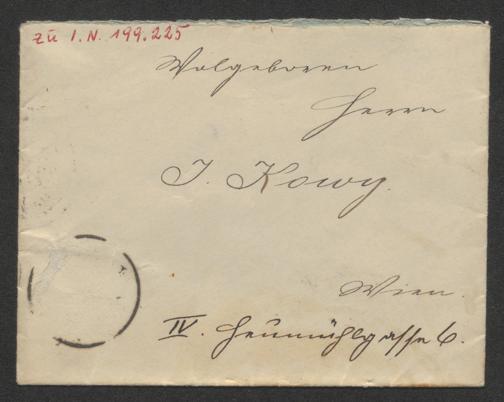 zu I.N. 199.225
Wolgeboren
Herrn
J. Kowy.
Wien.
IV. Heumühlgasse 6.